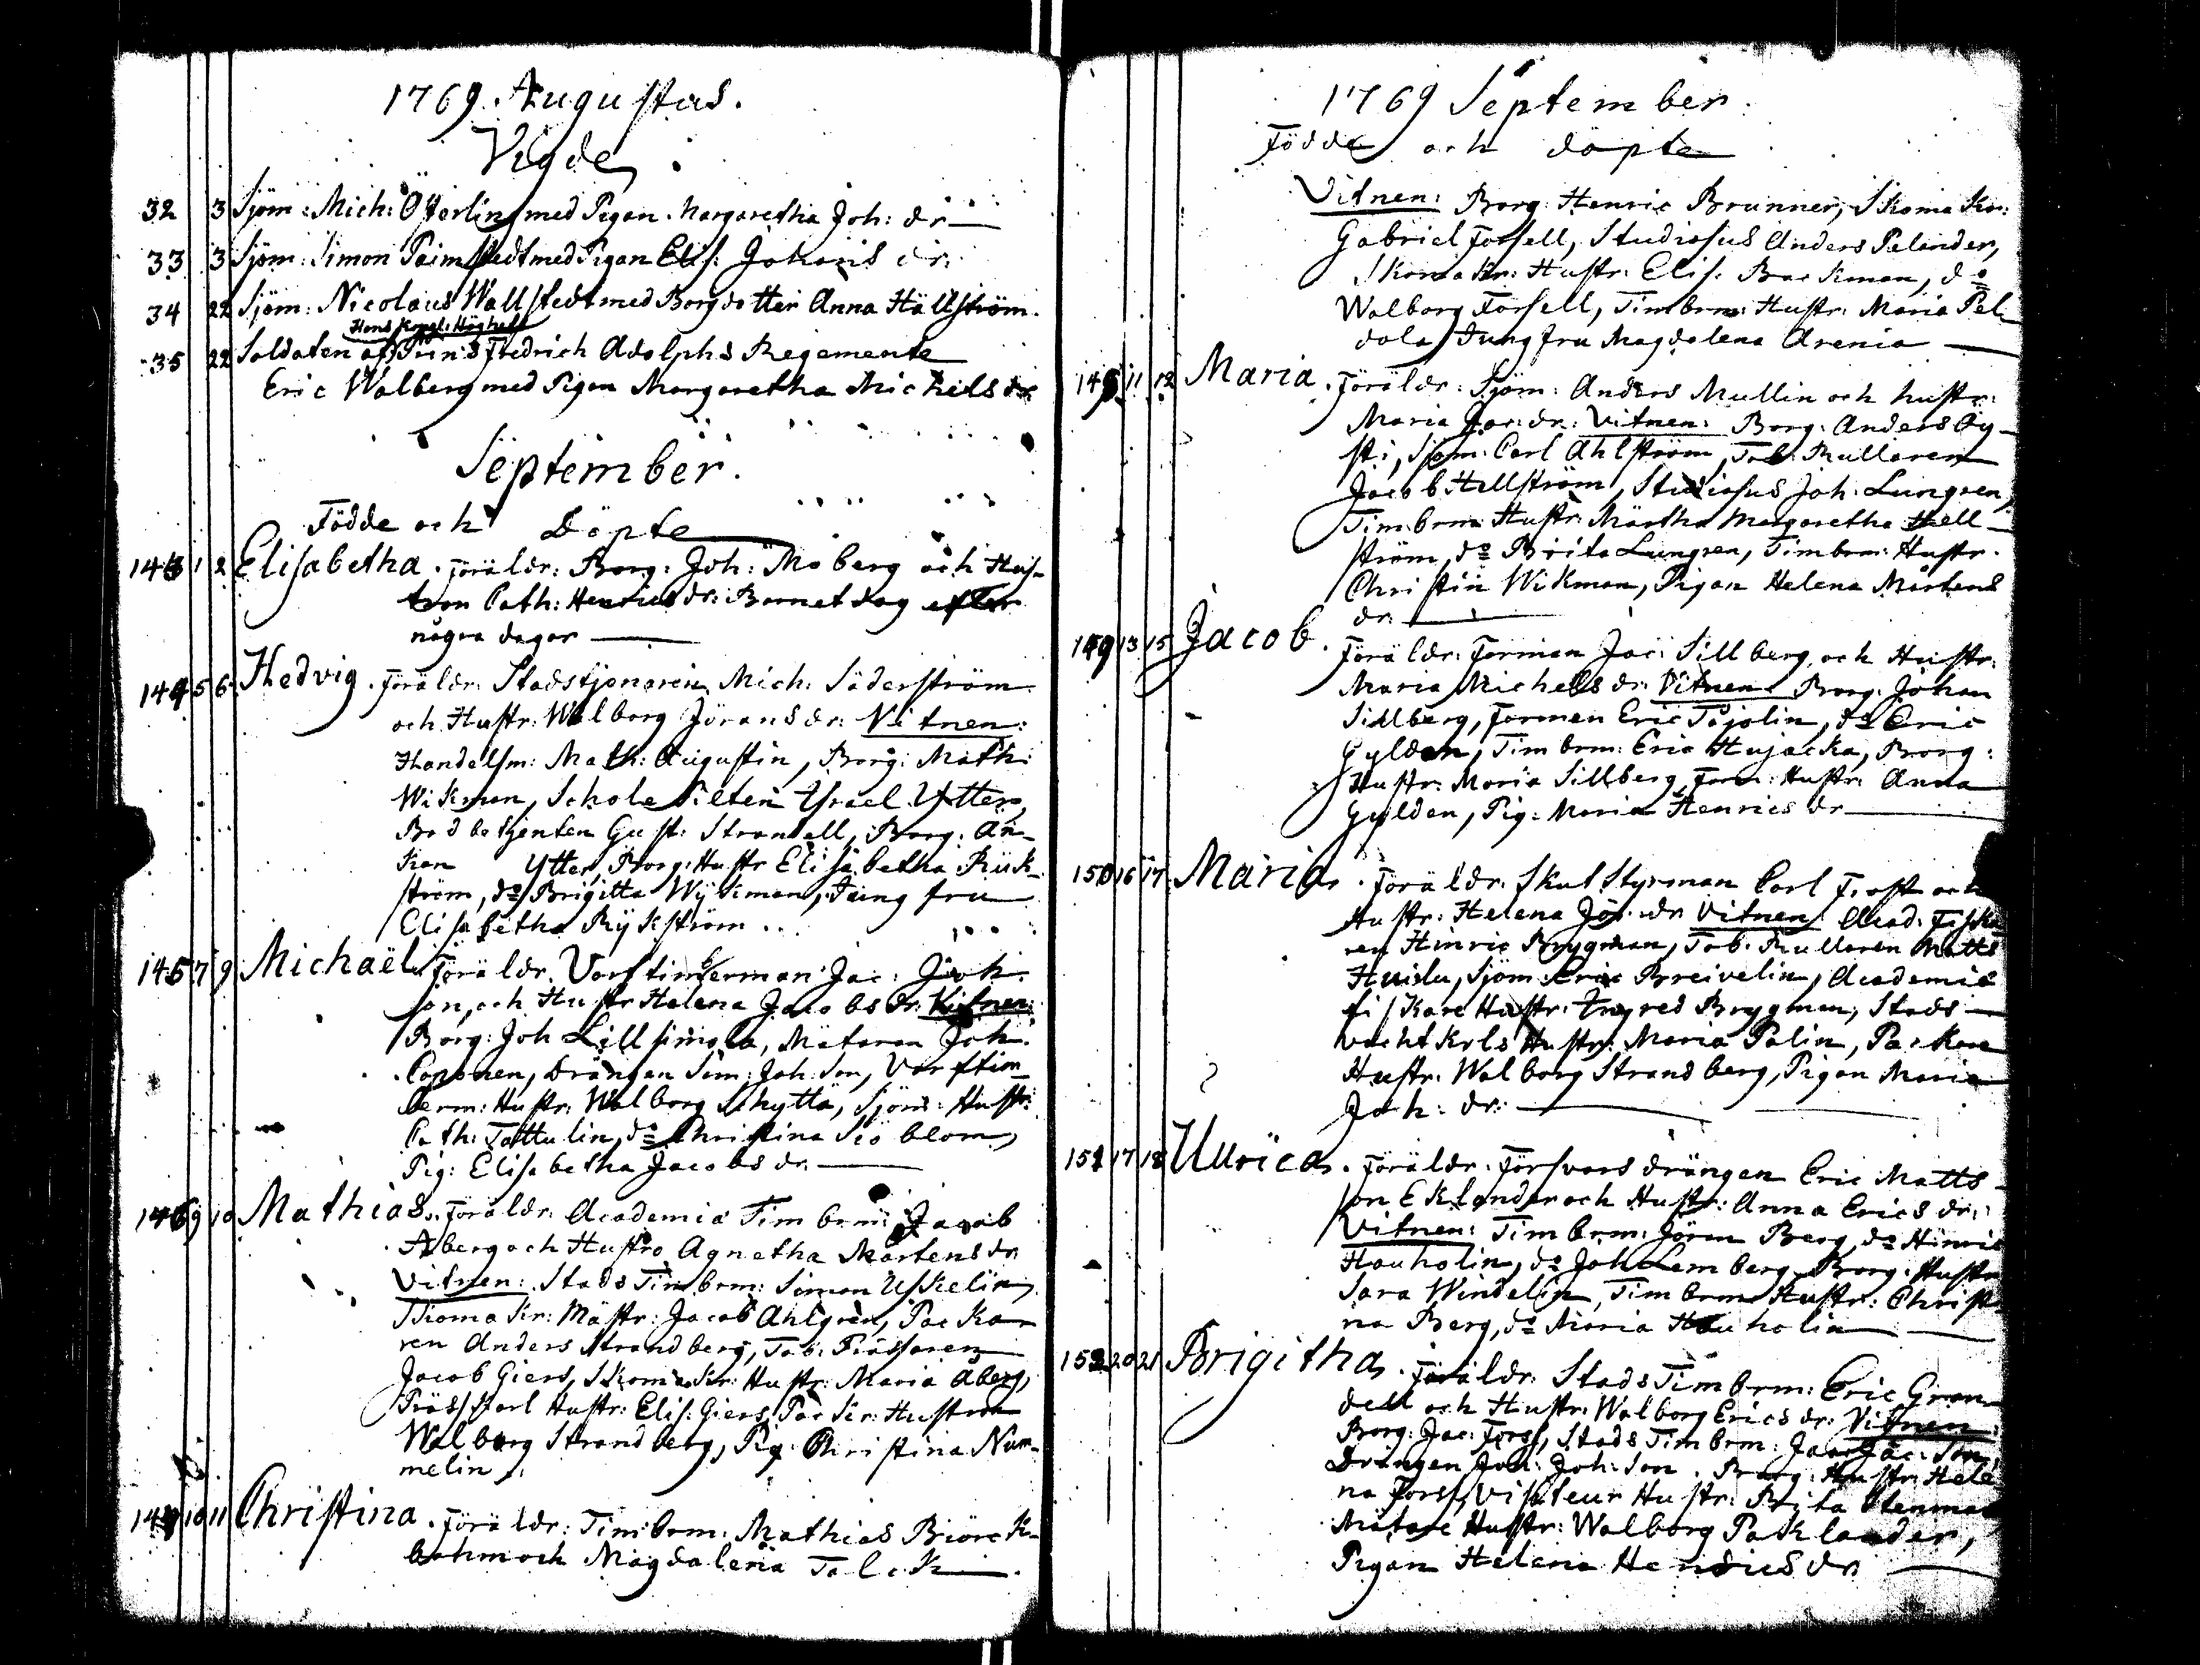 1769. Augustus.
Vigde
32 3 Sjöm: Mich: Österlin med Pigan Margaretha Joh: dr
33 3 Sjöm: Simon Palmstedt med Pigan Elis: Johans dr:
34 22 Sjöm: Nicolaus Wallstedt med Borgdotter Anna Hällström.
Hans Kongl: Höghets
35 22 Soldaten af Prins Fredrich Adolphs Regemente
Eric Walberg med Pigan Margaretha Michelsdr
September.
Födde och Döpte
143 1 2 Elisabetha. Föräldr: Borg: Joh: Moberg och Hus-
tron Cath: Henricsdr: Barnet dog efter
några dagar
144 5 6 Hedvig. Föräldr: Stadstjenaren Mich: Söderström
och Hustr: Walborg Jöransdr: Vitnen:
Handelsm: Math: Augustin, Borg: Math:
Wikman, Schole Pilten Israel Ytter,
Bodbetjenten Gust: Strandell, Borg. Än-
kan Ytter, Borg: Hustr Elisabetha Rük-
ström, do Brigitta Wykman, Jungfru
Elisabetha Rykström
145 7 9 Michaël. Föräldr. Varftimberman Jac: Joh:
son, och Hustr Helena Jacobsdr: Vitnen:
Borg: Joh Lillsimola, Mätaren Joh:
Coponen, Drängen Sim: Joh: Son, Varftim-
berm: Hustr: Walborg Schyttä, Sjöm: Hustr:
Cath: Tattulin, do Christina Siöblom,
Pig: Elisabetha Jacobsdr.
146 9 10 Mathias. Föräldr: Academiæ Timbrm: Jacob
Åberg och Hustro Agnetha Mårtensdr
Vitnen: Stads Timbrm: Simon Uskelin,
Skomakr: Mästr: Jacob Ahlgren, Packa-
ren Anders Strandberg, Tob: Prässaren
Jacob Giers, Skomakr: Hustr: Maria Åberg,
Präss Karl Hustr: Elis: Giers, Packr: Hustrun
Walborg Strandberg, Pig. Christina Num-
melin
147 10 11 Christina. Föräldr: Timbrm: Mathias Biörck-
bohm och Magdalena Falck
1769 September.
Födde och döpte
Vitnen: Borg: Henric Brunner, Skomakr:
Gabriel Forsell, Studiosus Anders Pelander,
Skomakr: Hustr: Elis: Backman, do
Walborg Forsell, Timbrm: Hustr: Maria Pel-
dola, Jungfru Magdalena Arenia
148 11 12 Maria. Föräldr: Sjöm: Anders Mullin och hustr:
Maria Jac: dr: Vitnen: Borg: Anders Öy-
sti, Sjöm: Carl Ahlström, Tob: Rullaren
Jacob Hellström, Studiosus Joh: Lungren,
Timbrm: Hustr: Märtha Margaretha Hell-
ström, do Brita Lungren, Timbrm: Hustr.
Christin Wikman, Pigan Helena Mårtens
dr:
149 13 15 Jacob. Föräldr: Forman Jac: Sillberg, och Hustr:
Maria Michelsdr: Vitnen: Borg: Johan
Sillberg, Forman Eric Töjolin, do Eric
Gylden, Timbrm: Eric Hujacka, Borg:
Hustr: Maria Sillberg, Form: Hustr: Anna
Gylden, Pig: Maria Henricsdr
150 16 17 Maria. Föräldr. Skut Styrman Carl Frost och
Hustr: Helena Jör: dr Vitnen: Acad: Fiska-
ren Hinric Brygman, Tob. Rullaren Matts
Huidu, Sjöm: Eric Breivelin, Academiæ
fiskare Hustr: Ingred Brygman, Stads
vacht Krls Hustr: Maria Palin, Packare
Hustr: Walborg Strandberg, Pigan Maria
Joh: dr:
151 17 18 Ulrica. Föräldr. Försvarsdrängen Eric Matts-
son Eklander och Hustr: Anna Ericsdr:
Vitnen: Timbrm: Jöran Berg, do Hinric
Hauholin, do Joh Lemberg, Borg: Hustr
Sara Windelin, Timbrm Hustr: Christi-
na Berg, do Maria Hauholin
152 20 21 Brigitha. Föräldr: Stads Timbrm: Eric Gran-
dell och Hustr: Walborg Ericsdr: Vitnen:
Borg: Jac: Forss, Stads Timbrm: Jac: Jac: Son,
Drängen Joh: Joh: Son. Borg: Hustr: Hele-
na Forss, Visiteur Hustr: Brita Stenman
Mätare Hustr: Walborg Packlander,
Pigan Helena Henricsdr